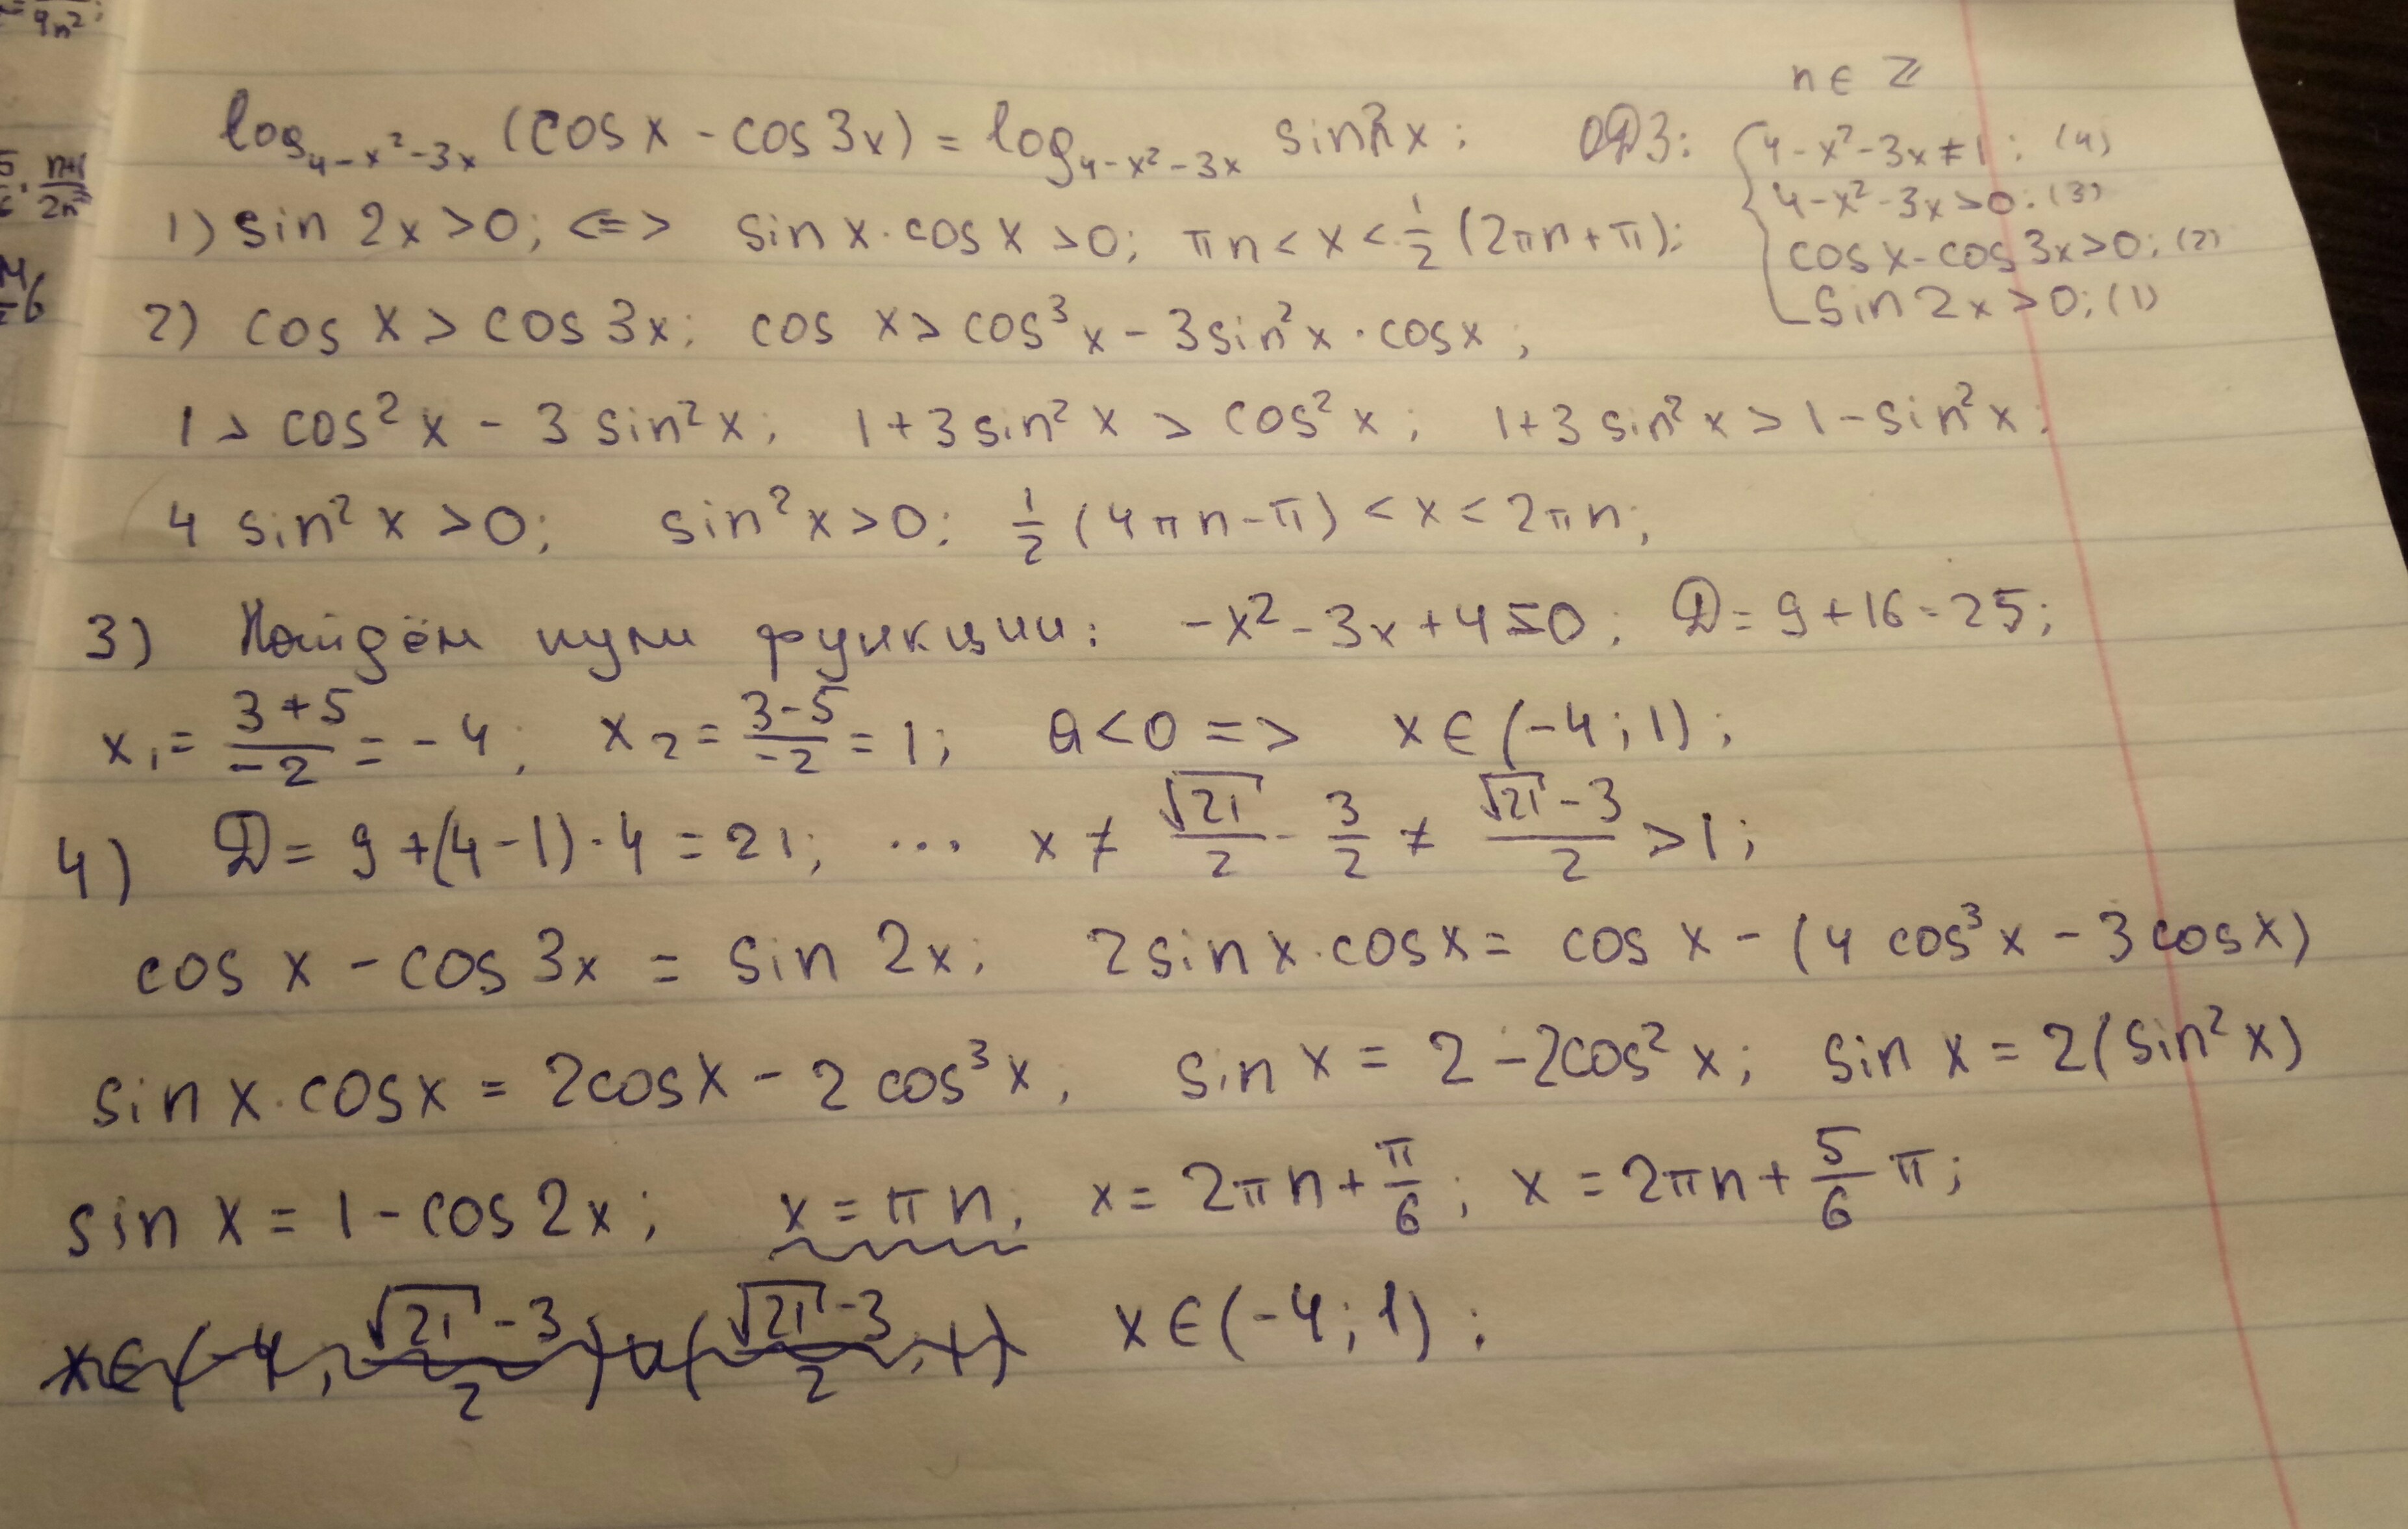 n ∈ Z
log₄₋ₓ²₋₃ₓ (cos x - cos 3x) = log₄₋ₓ²₋₃ₓ sin 2x; ОДЗ: { 4-x²-3x≠1; (4)
4-x²-3x>0; (3)
cos x - cos 3x>0; (2)
sin 2x>0; (1)
1) sin 2x>0; <=> sin x·cos x >0; πn < x < 1/2 (2πn+π);
2) cos x > cos 3x; cos x > cos³x - 3sin²x · cos x;
1 > cos²x - 3 sin²x; 1+3sin²x > cos²x; 1+3 sin²x > 1-sin²x;
4 sin²x >0; sin²x>0; 1/2 (4πn-π) < x < 2πn;
3) Найдём нули функции: -x²-3x+4=0; D=9+16=25;
x₁ = (3+5)/(-2) = -4; x₂ = (3-5)/(-2) = 1; a<0 => x∈(-4; 1);
4) D = 9+(4-1)·4 = 21; ... x ≠ √21/2 - 3/2 ≠ (√21-3)/2 >1;
cos x - cos 3x = sin 2x; 2sin x·cos x = cos x - (4 cos³x - 3cos x)
sin x·cos x = 2cos x - 2 cos³x; sin x = 2-2cos²x; sin x = 2(sin²x)
sin x = 1-cos 2x; x = πn; x = 2πn + π/6; x = 2πn + 5/6 π;
x∈(-4; (√21-3)/2)∪((√21-3)/2; 1) x∈(-4; 1);